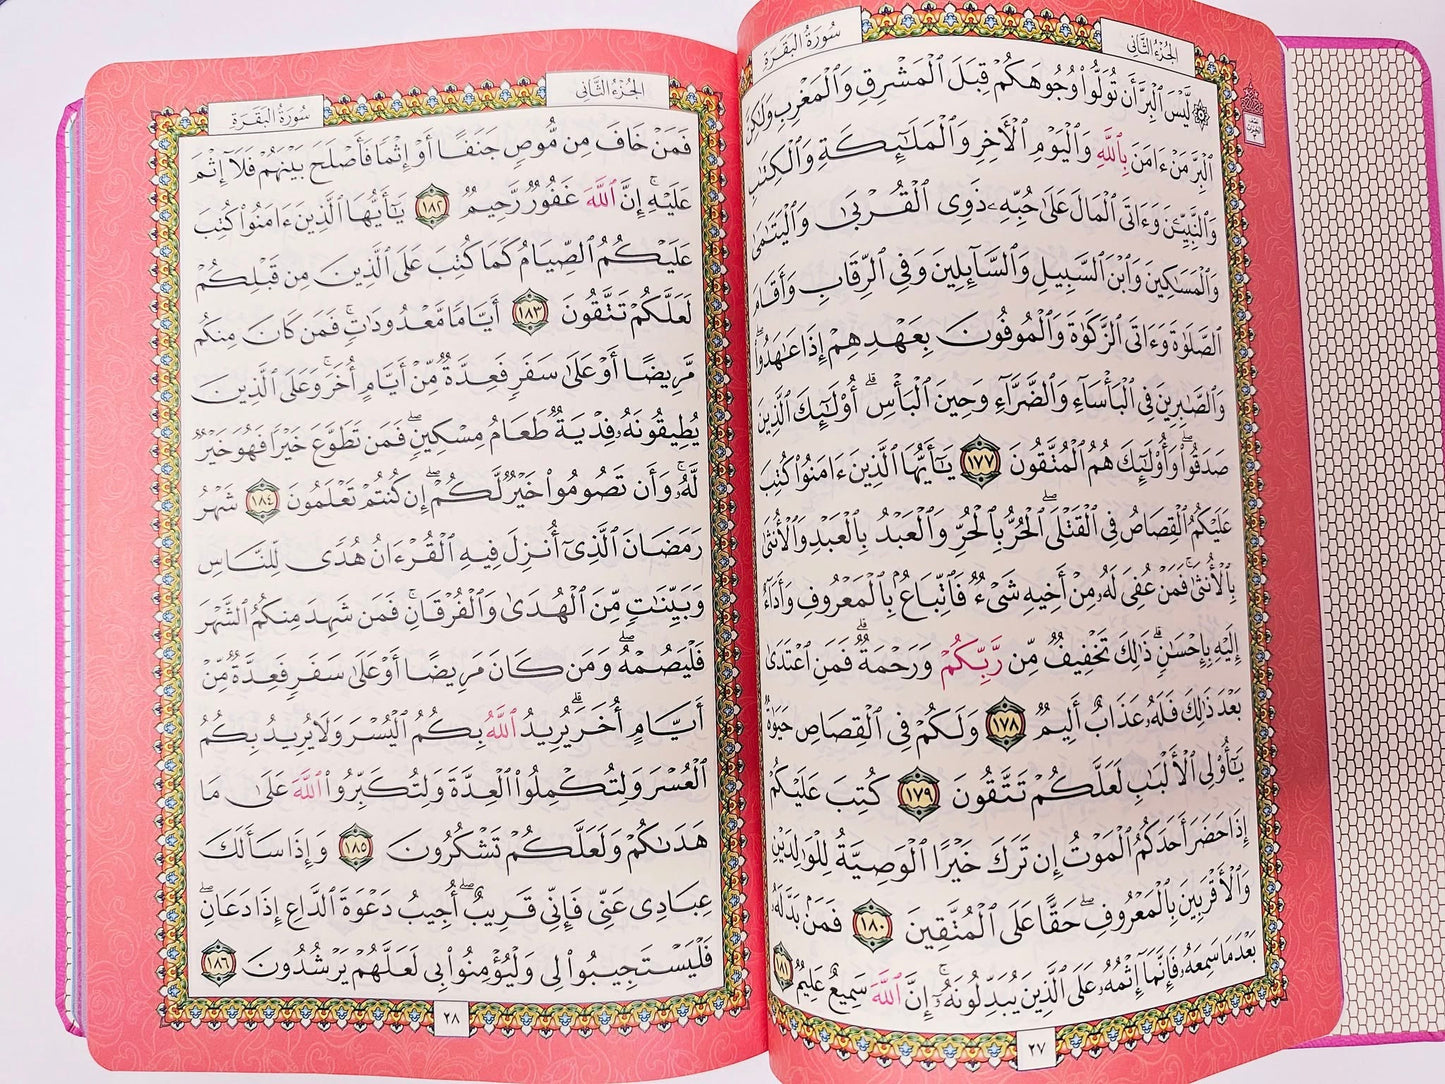 سُورَةُ البَقَرَةِ
الجُزْءُ الثَّانِي
۞ لَّيْسَ ٱلْبِرَّ أَن تُوَلُّوا۟ وُجُوهَكُمْ قِبَلَ ٱلْمَشْرِقِ وَٱلْمَغْرِبِ وَلَٰكِنَّ
ٱلْبِرَّ مَنْ ءَامَنَ بِٱللَّهِ وَٱلْيَوْمِ ٱلْأَخِرِ وَٱلْمَلَٰٓئِكَةِ وَٱلْكِتَٰبِ
وَٱلنَّبِيِّۦنَ وَءَاتَى ٱلْمَالَ عَلَىٰ حُبِّهِۦ ذَوِى ٱلْقُرْبَىٰ وَٱلْيَتَٰمَىٰ
وَٱلْمَسَٰكِينَ وَٱبْنَ ٱلسَّبِيلِ وَٱلسَّآئِلِينَ وَفِى ٱلرِّقَابِ وَأَقَامَ
ٱلصَّلَوٰةَ وَءَاتَى ٱلزَّكَوٰةَ وَٱلْمُوفُونَ بِعَهْدِهِمْ إِذَا عَٰهَدُوا۟ ۖ
وَٱلصَّٰبِرِينَ فِى ٱلْبَأْسَآءِ وَٱلضَّرَّآءِ وَحِينَ ٱلْبَأْسِ ۗ أُو۟لَٰٓئِكَ ٱلَّذِينَ
صَدَقُوا۟ ۖ وَأُو۟لَٰٓئِكَ هُمُ ٱلْمُتَّقُونَ ١٧٧ يَٰٓأَيُّهَا ٱلَّذِينَ ءَامَنُوا۟ كُتِبَ
عَلَيْكُمُ ٱلْقِصَاصُ فِى ٱلْقَتْلَى ۖ ٱلْحُرُّ بِٱلْحُرِّ وَٱلْعَبْدُ بِٱلْعَبْدِ وَٱلْأُنثَىٰ
بِٱلْأُنثَىٰ ۚ فَمَنْ عُفِىَ لَهُۥ مِنْ أَخِيهِ شَىْءٌ فَٱتِّبَاعٌۢ بِٱلْمَعْرُوفِ وَأَدَآءٌ
إِلَيْهِ بِإِحْسَٰنٍ ۗ ذَٰلِكَ تَخْفِيفٌ مِّن رَّبِّكُمْ وَرَحْمَةٌ ۗ فَمَنِ ٱعْتَدَىٰ
بَعْدَ ذَٰلِكَ فَلَهُۥ عَذَابٌ أَلِيمٌ ١٧٨ وَلَكُمْ فِى ٱلْقِصَاصِ حَيَوٰةٌ
يَٰٓأُو۟لِى ٱلْأَلْبَٰبِ لَعَلَّكُمْ تَتَّقُونَ ١٧٩ كُتِبَ عَلَيْكُمْ
إِذَا حَضَرَ أَحَدَكُمُ ٱلْمَوْتُ إِن تَرَكَ خَيْرًا ٱلْوَصِيَّةُ لِلْوَٰلِدَيْنِ
وَٱلْأَقْرَبِينَ بِٱلْمَعْرُوفِ ۖ حَقًّا عَلَى ٱلْمُتَّقِينَ ١٨٠ فَمَنۢ بَدَّلَهُۥ
بَعْدَمَا سَمِعَهُۥ فَإِنَّمَآ إِثْمُهُۥ عَلَى ٱلَّذِينَ يُبَدِّلُونَهُۥٓ ۚ إِنَّ ٱللَّهَ سَمِيعٌ عَلِيمٌ ١٨١
٢٧
سُورَةُ البَقَرَةِ
الجُزْءُ الثَّانِي
فَمَنْ خَافَ مِن مُّوصٍ جَنَفًا أَوْ إِثْمًا فَأَصْلَحَ بَيْنَهُمْ فَلَآ إِثْمَ
عَلَيْهِ ۚ إِنَّ ٱللَّهَ غَفُورٌ رَّحِيمٌ ١٨٢ يَٰٓأَيُّهَا ٱلَّذِينَ ءَامَنُوا۟ كُتِبَ
عَلَيْكُمُ ٱلصِّيَامُ كَمَا كُتِبَ عَلَى ٱلَّذِينَ مِن قَبْلِكُمْ
لَعَلَّكُمْ تَتَّقُونَ ١٨٣ أَيَّامًا مَّعْدُودَٰتٍ ۚ فَمَن كَانَ مِنكُم
مَّرِيضًا أَوْ عَلَىٰ سَفَرٍ فَعِدَّةٌ مِّنْ أَيَّامٍ أُخَرَ ۚ وَعَلَى ٱلَّذِينَ
يُطِيقُونَهُۥ فِدْيَةٌ طَعَامُ مِسْكِينٍ ۖ فَمَن تَطَوَّعَ خَيْرًا فَهُوَ خَيْرٌ
لَّهُۥ ۚ وَأَن تَصُومُوا۟ خَيْرٌ لَّكُمْ ۖ إِن كُنتُمْ تَعْلَمُونَ ١٨٤ شَهْرُ
رَمَضَانَ ٱلَّذِىٓ أُنزِلَ فِيهِ ٱلْقُرْءَانُ هُدًى لِّلنَّاسِ
وَبَيِّنَٰتٍ مِّنَ ٱلْهُدَىٰ وَٱلْفُرْقَانِ ۚ فَمَن شَهِدَ مِنكُمُ ٱلشَّهْرَ
فَلْيَصُمْهُ ۖ وَمَن كَانَ مَرِيضًا أَوْ عَلَىٰ سَفَرٍ فَعِدَّةٌ مِّنْ
أَيَّامٍ أُخَرَ ۗ يُرِيدُ ٱللَّهُ بِكُمُ ٱلْيُسْرَ وَلَا يُرِيدُ بِكُمُ
ٱلْعُسْرَ وَلِتُكْمِلُوا۟ ٱلْعِدَّةَ وَلِتُكَبِّرُوا۟ ٱللَّهَ عَلَىٰ مَا
هَدَىٰكُمْ وَلَعَلَّكُمْ تَشْكُرُونَ ١٨٥ وَإِذَا سَأَلَكَ
عِبَادِى عَنِّى فَإِنِّى قَرِيبٌ ۖ أُجِيبُ دَعْوَةَ ٱلدَّاعِ إِذَا دَعَانِ ۖ
فَلْيَسْتَجِيبُوا۟ لِى وَلْيُؤْمِنُوا۟ بِى لَعَلَّهُمْ يَرْشُدُونَ ١٨٦
٢٨